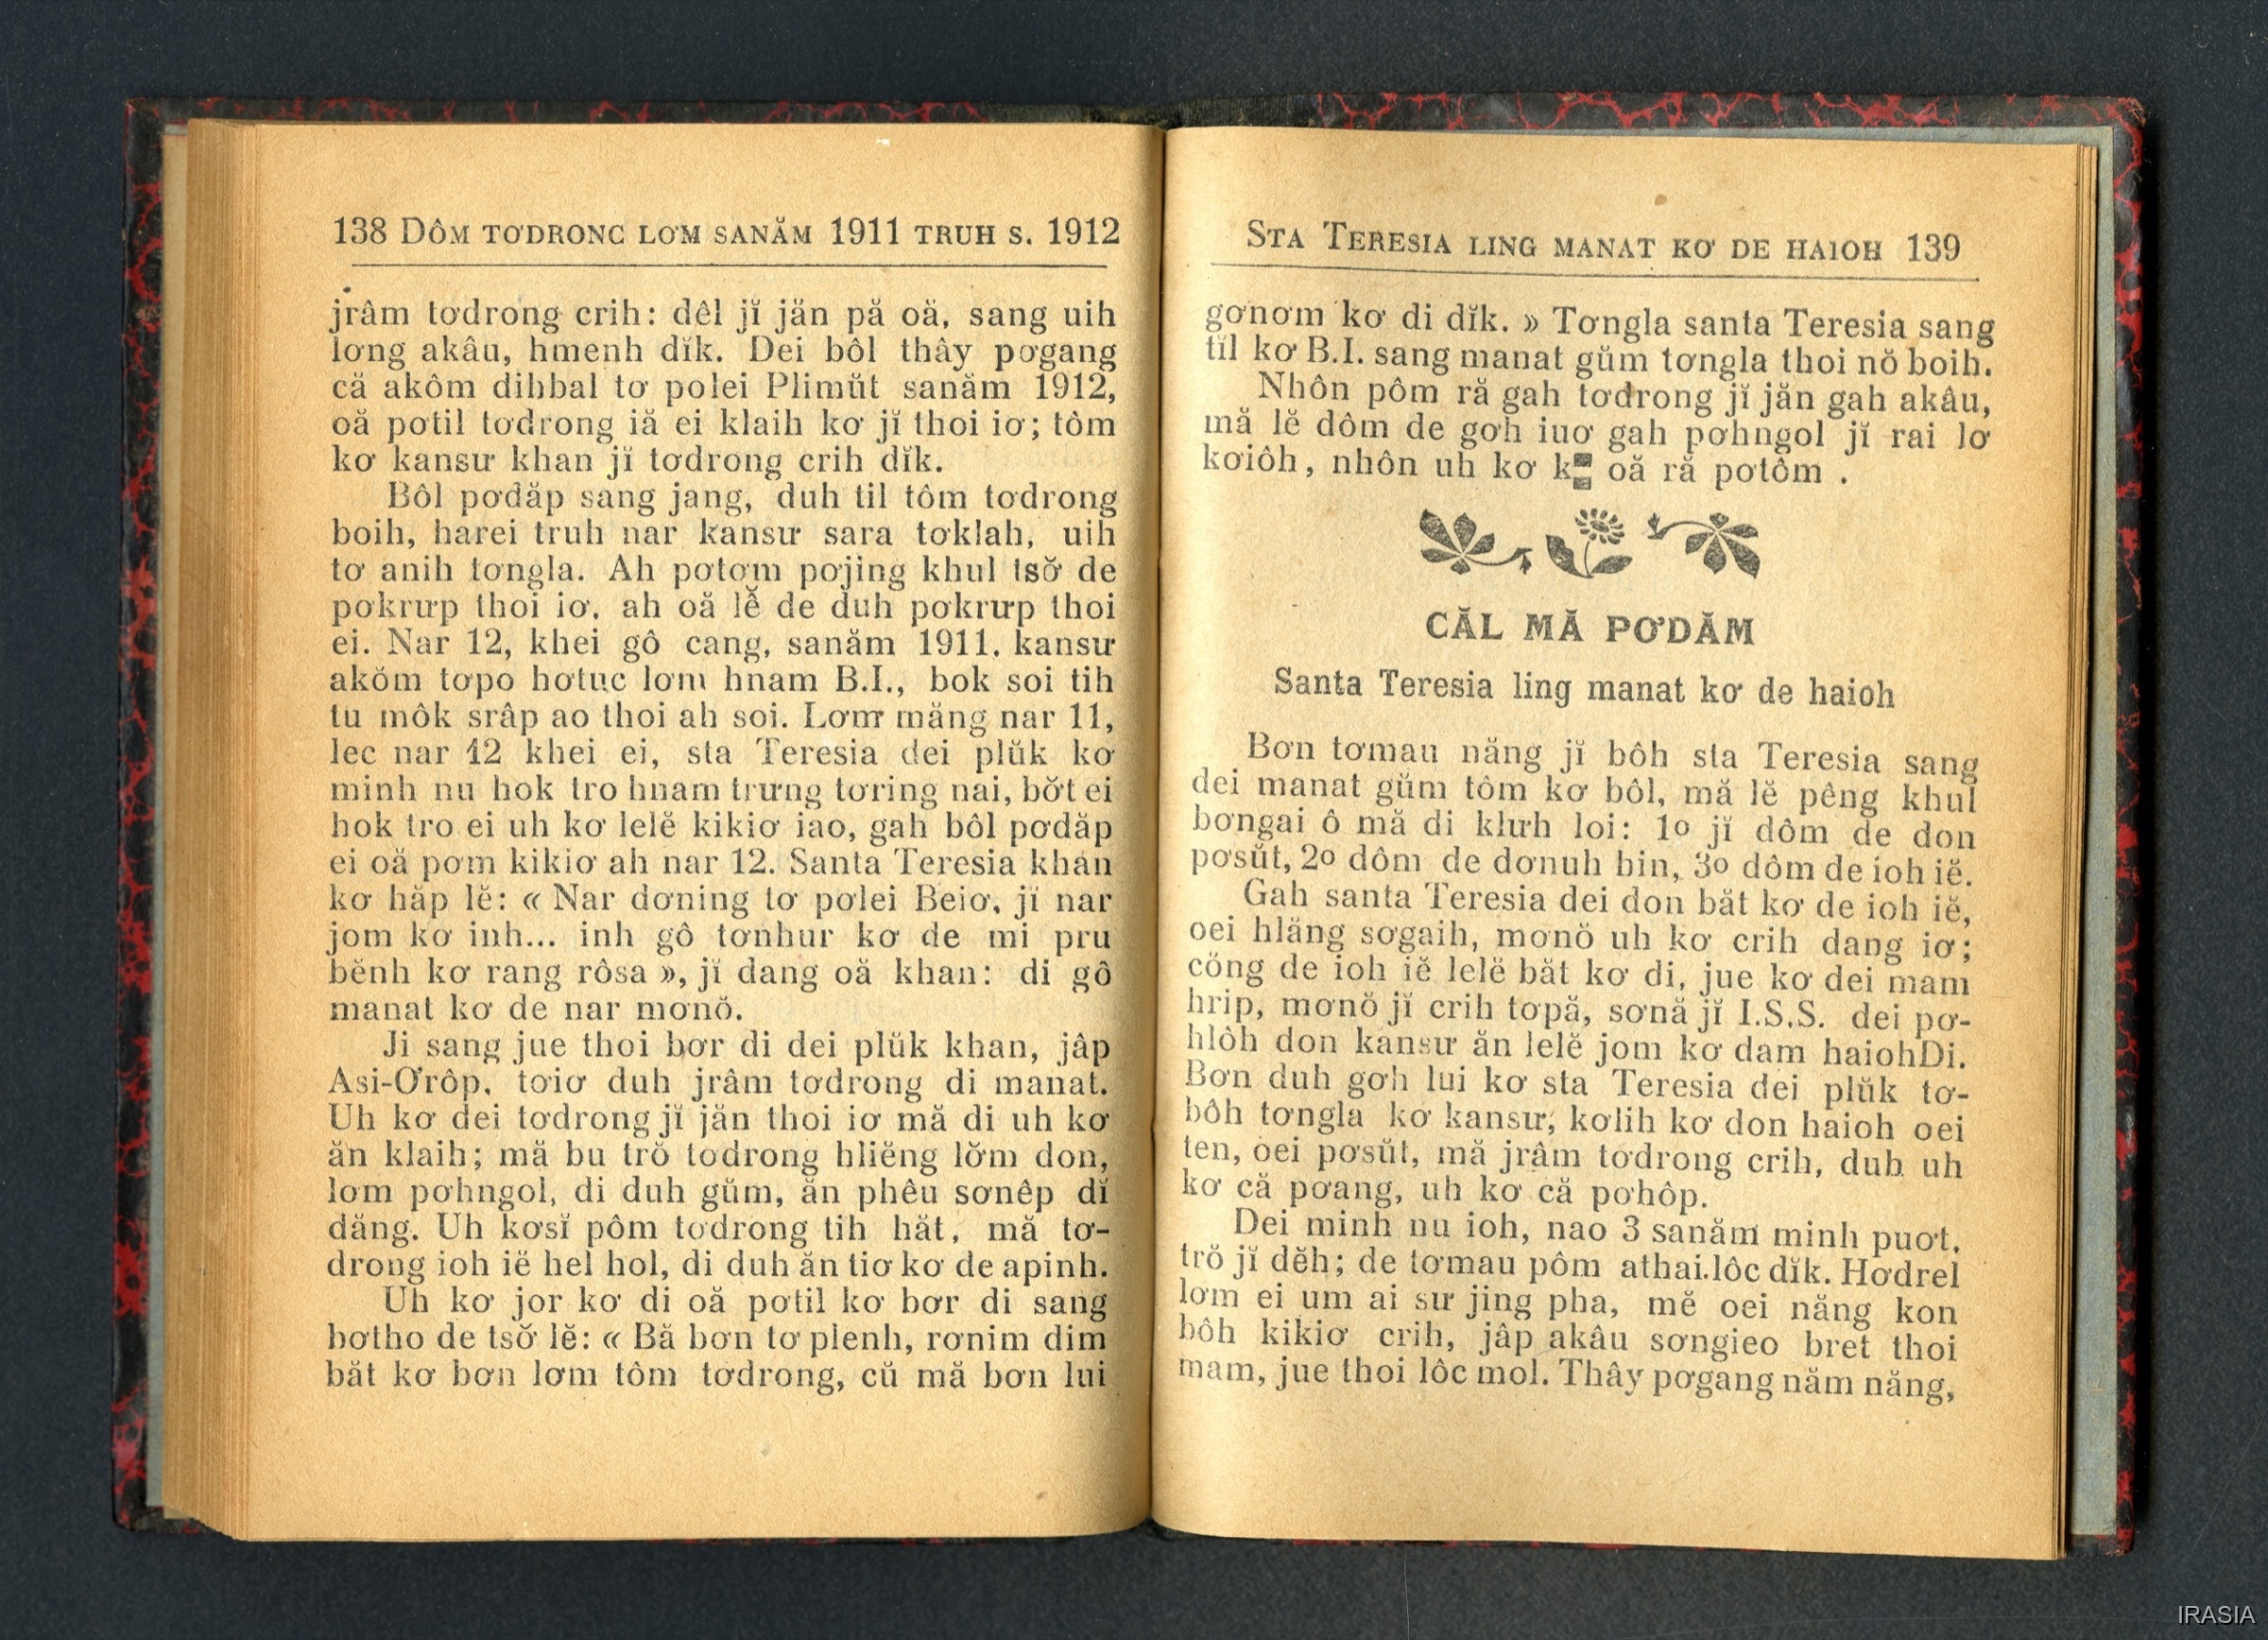 138 DÔM TƠDRONG LƠM SANĂM 1911 TRUH S. 1912
jrâm tơdrong crih: dêl jĭ jăn pă oă, sang uih
lơng akâu, hmenh dĭk. Dei bôl thây pơgang
că akôm dihbal tơ polei Plimŭt sanăm 1912,
oă pơtil tơdrong iă ei klaih kơ jĭ thoi iơ; tôm
kơ kansư khan jĭ tơdrong crih dĭk.
Bôl pơdăp sang jang, duh til tôm tơdrong
boih, harei truh nar kansư sara tơklah, uih
tơ anih tơngla. Ah pơtơm pơjing khul tsơ̆ de
pơkrưp thoi iơ, ah oă lĕ̆ de duh pơkrưp thoi
ei. Nar 12, khei gô cang, sanăm 1911, kansư
akŏm tơpo hơtuc lơm hnam B.I., bok soi tih
tu môk srâp ao thoi ah soi. Lơm măng nar 11,
lec nar 12 khei ei, sta Teresia dei plŭk kơ
minh nu hok tro hnam trưng tơring nai, bơ̆t ei
hok tro ei uh kơ lelĕ kikiơ iao, gah bôl pơdăp
ei oă pơm kikiơ ah nar 12. Santa Teresia khan
kơ hăp lĕ: « Nar dơning tơ pơlei Beiơ, jĭ nar
jom kơ inh... inh gô tơnhur kơ de mi pru
bĕnh kơ rang rôsa », jĭ dang oă khan: di gô
manat kơ de nar mơnŏ.
Ji sang jue thoi bơr di dei plŭk khan, jâp
Asi-Ơrôp, tơiơ duh jrâm tơdrong di manat.
Uh kơ dei tơdrong jĭ jăn thoi iơ mă di uh kơ
ăn klaih; mă bu trŏ todrong hliĕng lơ̆m don,
lơm pơhngol, di duh gŭm, ăn phêu sơnêp dĭ
dăng. Uh kơsĭ pôm tơdrong tih hăt, mă tơ-
drong ioh iĕ hel hol, di duh ăn tiơ kơ de apinh.
Uh kơ jor kơ di oă pơtil kơ bơr di sang
bơtho de tsơ̆ lĕ: « Bă bơn tơ plenh, rơnim dim
băt kơ bơn lơm tôm tơdrong, cŭ mă bơn lui
STA TERESIA LING MANAT KƠ DE HAIOH 139
gơnơm kơ di dĭk. » Tơngla santa Teresia sang
tĭl kơ B.I. sang manat gŭm tơngla thoi nŏ boih.
Nhôn pôm ră gah tơdrong jĭ jăn gah akâu,
mă lĕ dôm de gơh iuơ gah pơhngol jĭ rai lơ
kơiôh, nhôn uh kơ oă ră pơtôm .
CĂL MĂ PƠDĂM
Santa Teresia ling manat kơ de haioh
Bơn tơmau năng jĭ bôh sta Teresia sang
dei manat gŭm tôm kơ bôl, mă lĕ pêng khul
bơngai ô mă di klưh loi: 1º jĭ dôm de don
pơsŭt, 2º dôm de dơnuh bin, 3º dôm de ioh iĕ.
Gah santa Teresia dei don băt kơ de ioh iĕ,
oei hlăng sơgaih, mơnŏ uh kơ crih dang iơ;
cŏng de ioh iĕ lelĕ băt kơ di, jue kơ dei mam
hrip, mơnŏ jĭ crih tơpă, sơnă jĭ I.S.S. dei pơ-
hlôh don kansư ăn lelĕ jom kơ dam haiohDi.
Bơn duh gơh lui kơ sta Teresia dei plŭk tơ-
bôh tơngla kơ kansư, kơlih kơ don haioh oei
ten, oei pơsŭt, mă jrâm tơdrong crih, duh uh
kơ că pơang, uh kơ că pơhôp.
Dei minh nu ioh, nao 3 sanăm minh puơt,
trŏ jĭ dĕh; de tơmau pôm athai.lôc dĭk. Hơdrel
lơm ei um ai sư jing pha, mĕ oei năng kon
bôh kikiơ crih, jâp akâu sơngieo bret thoi
mam, jue thoi lôc mol. Thây pơgang năm năng,
IRASIA